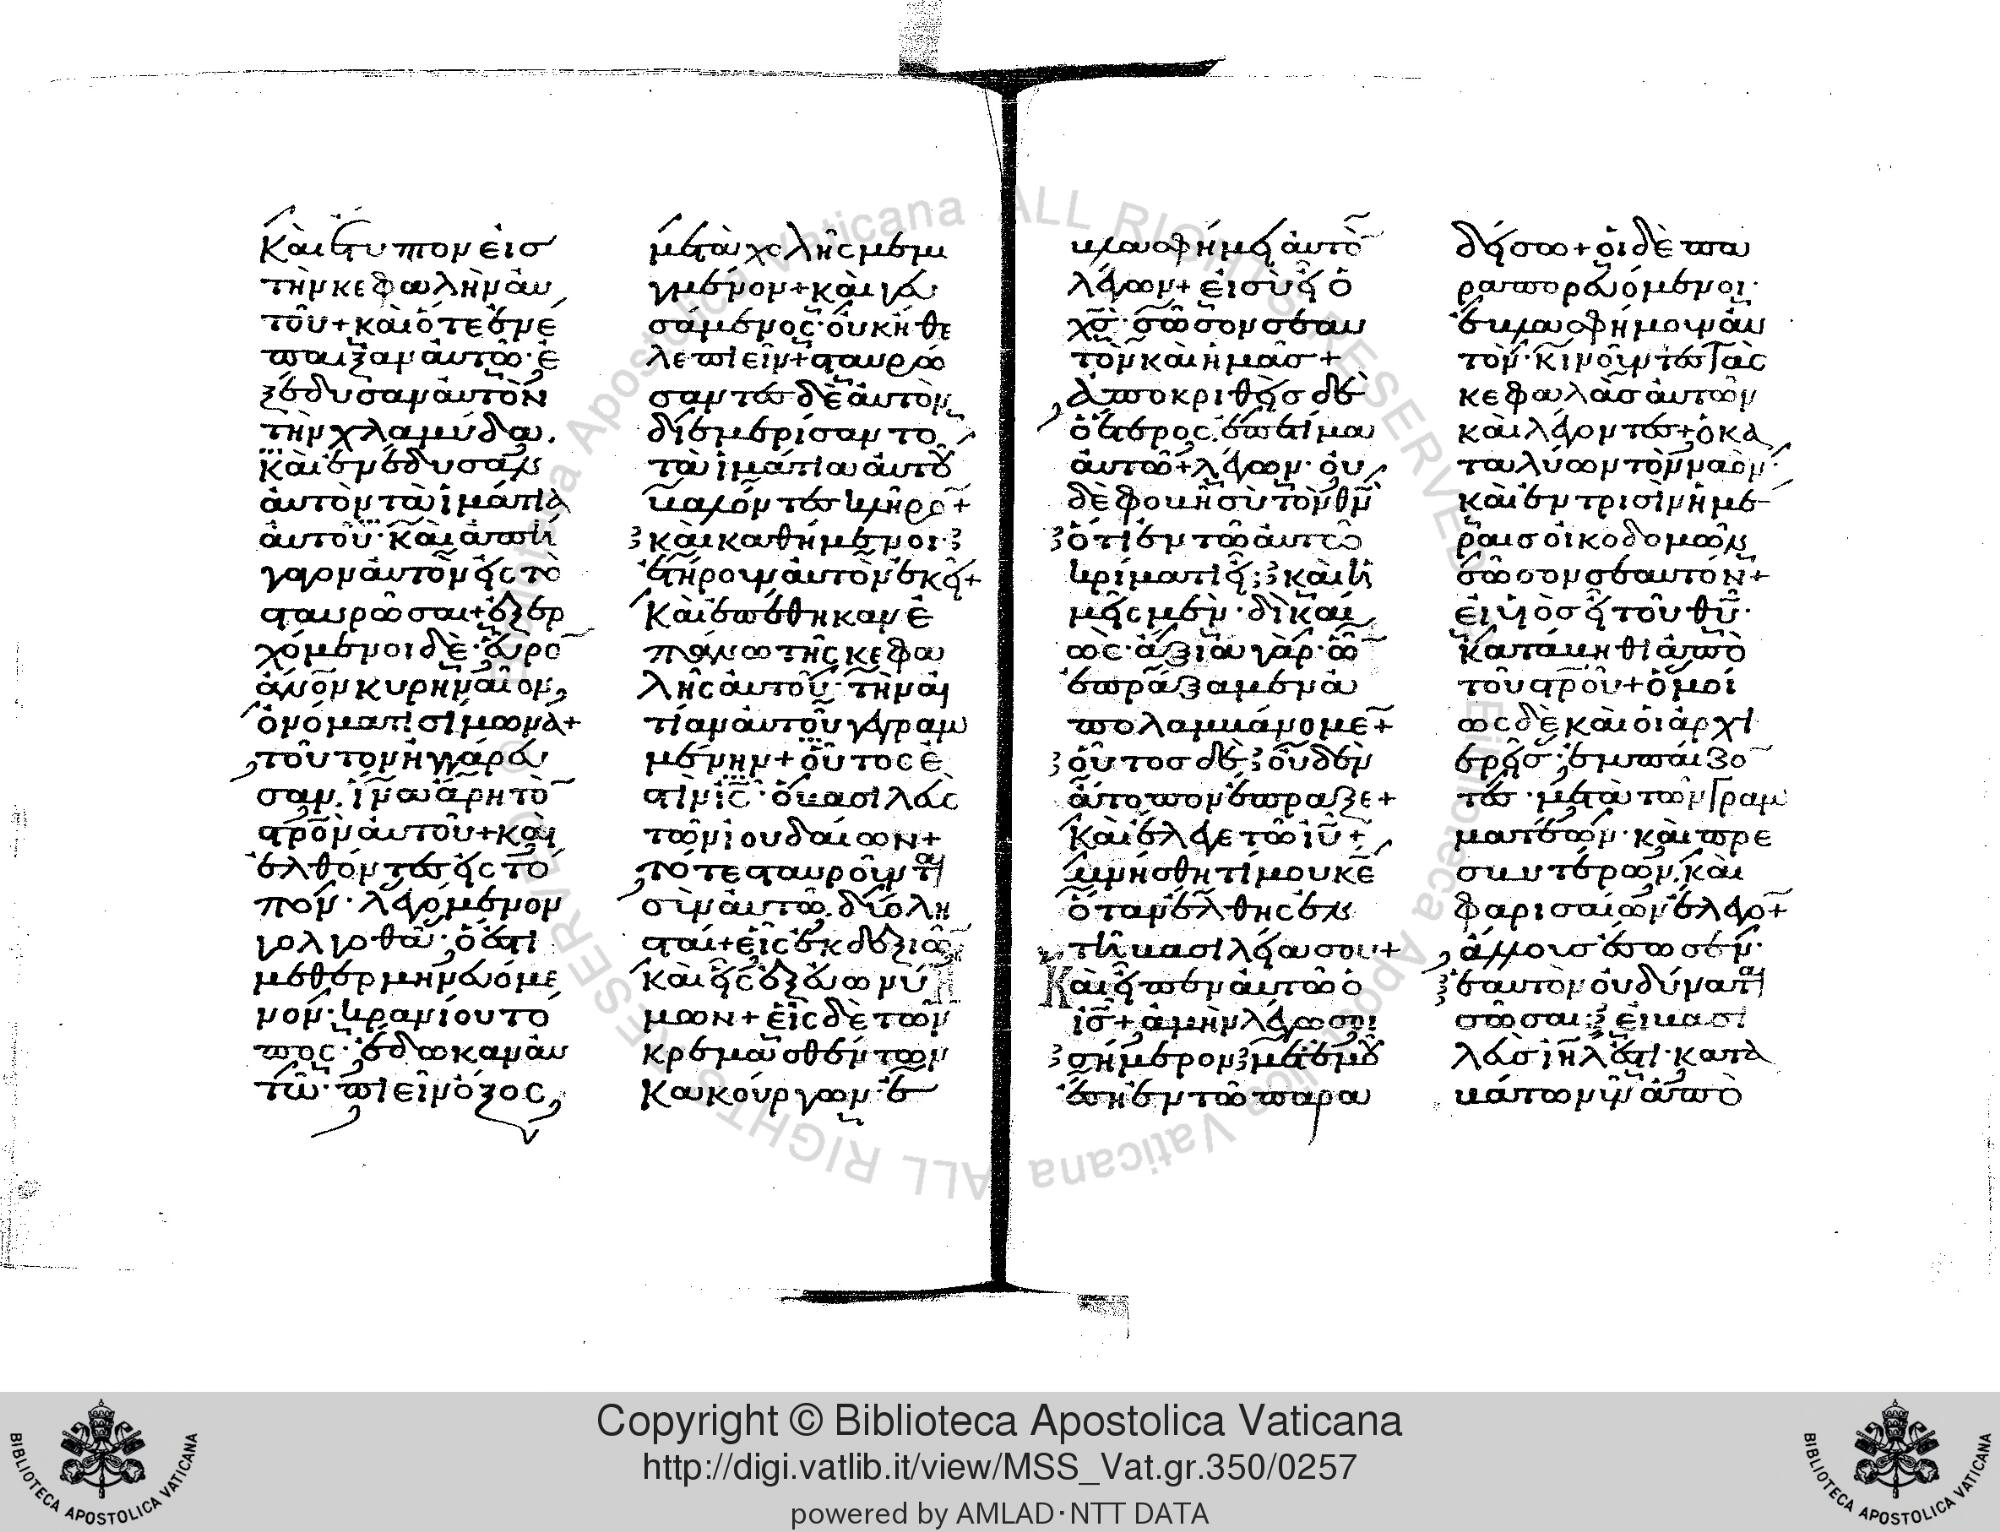 καὶ ἔτυπτον εἰσ
τὴν κεφαλὴν αυ
τοῦ + καὶ ὅτε ἐνέ
παιξαν αὐτῶ · ἐ
ξέδυσαν αὐτὸν
τὴν χλαμύδα,
καὶ ἐνέδυσαν
αὐτὸν τὰ ἱμάτια
αὐτοῦ · καὶ ἀπή
γαγον αὐτὸν εἰς τὸ
σταυρῶσαι + ἐξερ
χόμενοι δὲ · εὗρο
ἄνον κυρηναῖον,
ὀνόματι σίμωνα +
τοῦτον ἠγγάρευ
σαν, ἵνα ἄρη τὸ
στρον αὐτοῦ + καὶ
ἐλθόντες εἰς τό
πον · λεγόμενον
γολγοθᾶ · ὅ ἐστι
μεθερμηνευόμε
νον · κρανίου τό
πος · ἔδωκαν αυ
τῶ · πιεῖν ὄξος,
μετὰ χολῆς μεμι
γμένον + καὶ γευ
σάμενος · οὐκ ἤθε
λε πιεῖν + σταυρώ
σαντες δὲ αὐτὸν,
διεμερίσαντο,
τὰ ἱμάτια αὐτοῦ
βαλόντες κλῆρον +
καὶ καθήμενοι ·
ἐτήρουν αὐτὸν ἐκεῖ +
καὶ ἐπέθηκαν ἐ
πάνω τῆς κεφα
λῆς αὐτοῦ · τὴν αἰ
τίαν αὐτοῦ γεγραμ
μένην + οὗτος ἐ
στὶν ις · ὁ βασιλεὺς
τῶν ἰουδαίων +
τότε σταυροῦνται
σὺν αὐτῶ, δύο λη
σταί + εἷς ἐκ δεξιῶ
καὶ εἷς ἐξ εὐωνύ
μων + εἷς δὲ τῶν
κρεμασθέντων
κακούργων · ἐ
βλασφήμει αὐτὸ
λέγων + εἰ σὺ εἶ ὁ
χσ · σῶσον σεαυ
τὸν καὶ ἡμᾶσ +
ἀποκριθεὶσ δὲ
ὁ ἕτερος, ἐπετίμα
αὐτῶ + λέγων · οὐ
δὲ φοβῆ σὺ τὸν θν
ὅτι ἐν τῶ αὐτῶ
κρίματι εἶ; καὶ ἡ
μεῖς μὲν · δικαί
ως · ἄξια γὰρ · ὧ
ἐπράξαμεν ἀ
πολαμβάνομε +
οὗτοσ δὲ οὐδὲν
ἄτοπον ἔπραξε +
καὶ ἔλεγε τῶ ιυ +
μνήσθητί μου κε
ὅταν ἔλθης ἐν
τῆ βασιλεία σου +
καὶ εἶπεν αὐτῶ ὁ
ισ + ἀμὴν λέγω σοι
σήμερον μετ' ἐμοῦ
ἔση ἐν τῶ παρα
δείσω + οἱ δὲ πα
ραπορευόμενοι ·
ἐβλασφήμουν αυ
τὸν · κινοῦντες τὰς
κεφαλὰσ αὐτῶν
καὶ λέγοντες + ὁ κα
ταλύων τὸν ναὸν ·
καὶ ἐν τρισὶν ἡμέ
ραισ οἰκοδομῶν
σῶσον σεαυτόν +
εἰ υἱὸσ εἶ τοῦ θυ ·
κατάβηθι ἀπὸ
τοῦ στρου + ὁμοί
ως δὲ καὶ οἱ ἀρχι
ερεῖσ · ἐμπαίζο
τες · μετὰ τῶν γραμ
ματέων · καὶ πρε
σβυτέρων, καὶ
φαρισαίων ἔλεγο +
ἄλλουσ ἔσωσεν ·
ἑαυτὸν οὐ δύναται
σῶσαι · εἰ βασι
λεὺσ ιηλ ἐστι · κατα
βάτω νῦν ἀπὸ
Copyright © Biblioteca Apostolica Vaticana
http://digi.vatlib.it/view/MSS_Vat.gr.350/0257
powered by AMLAD·NTT DATA
BIBLIOTECA APOSTOLICA VATICANA
BIBLIOTECA APOSTOLICA VATICANA